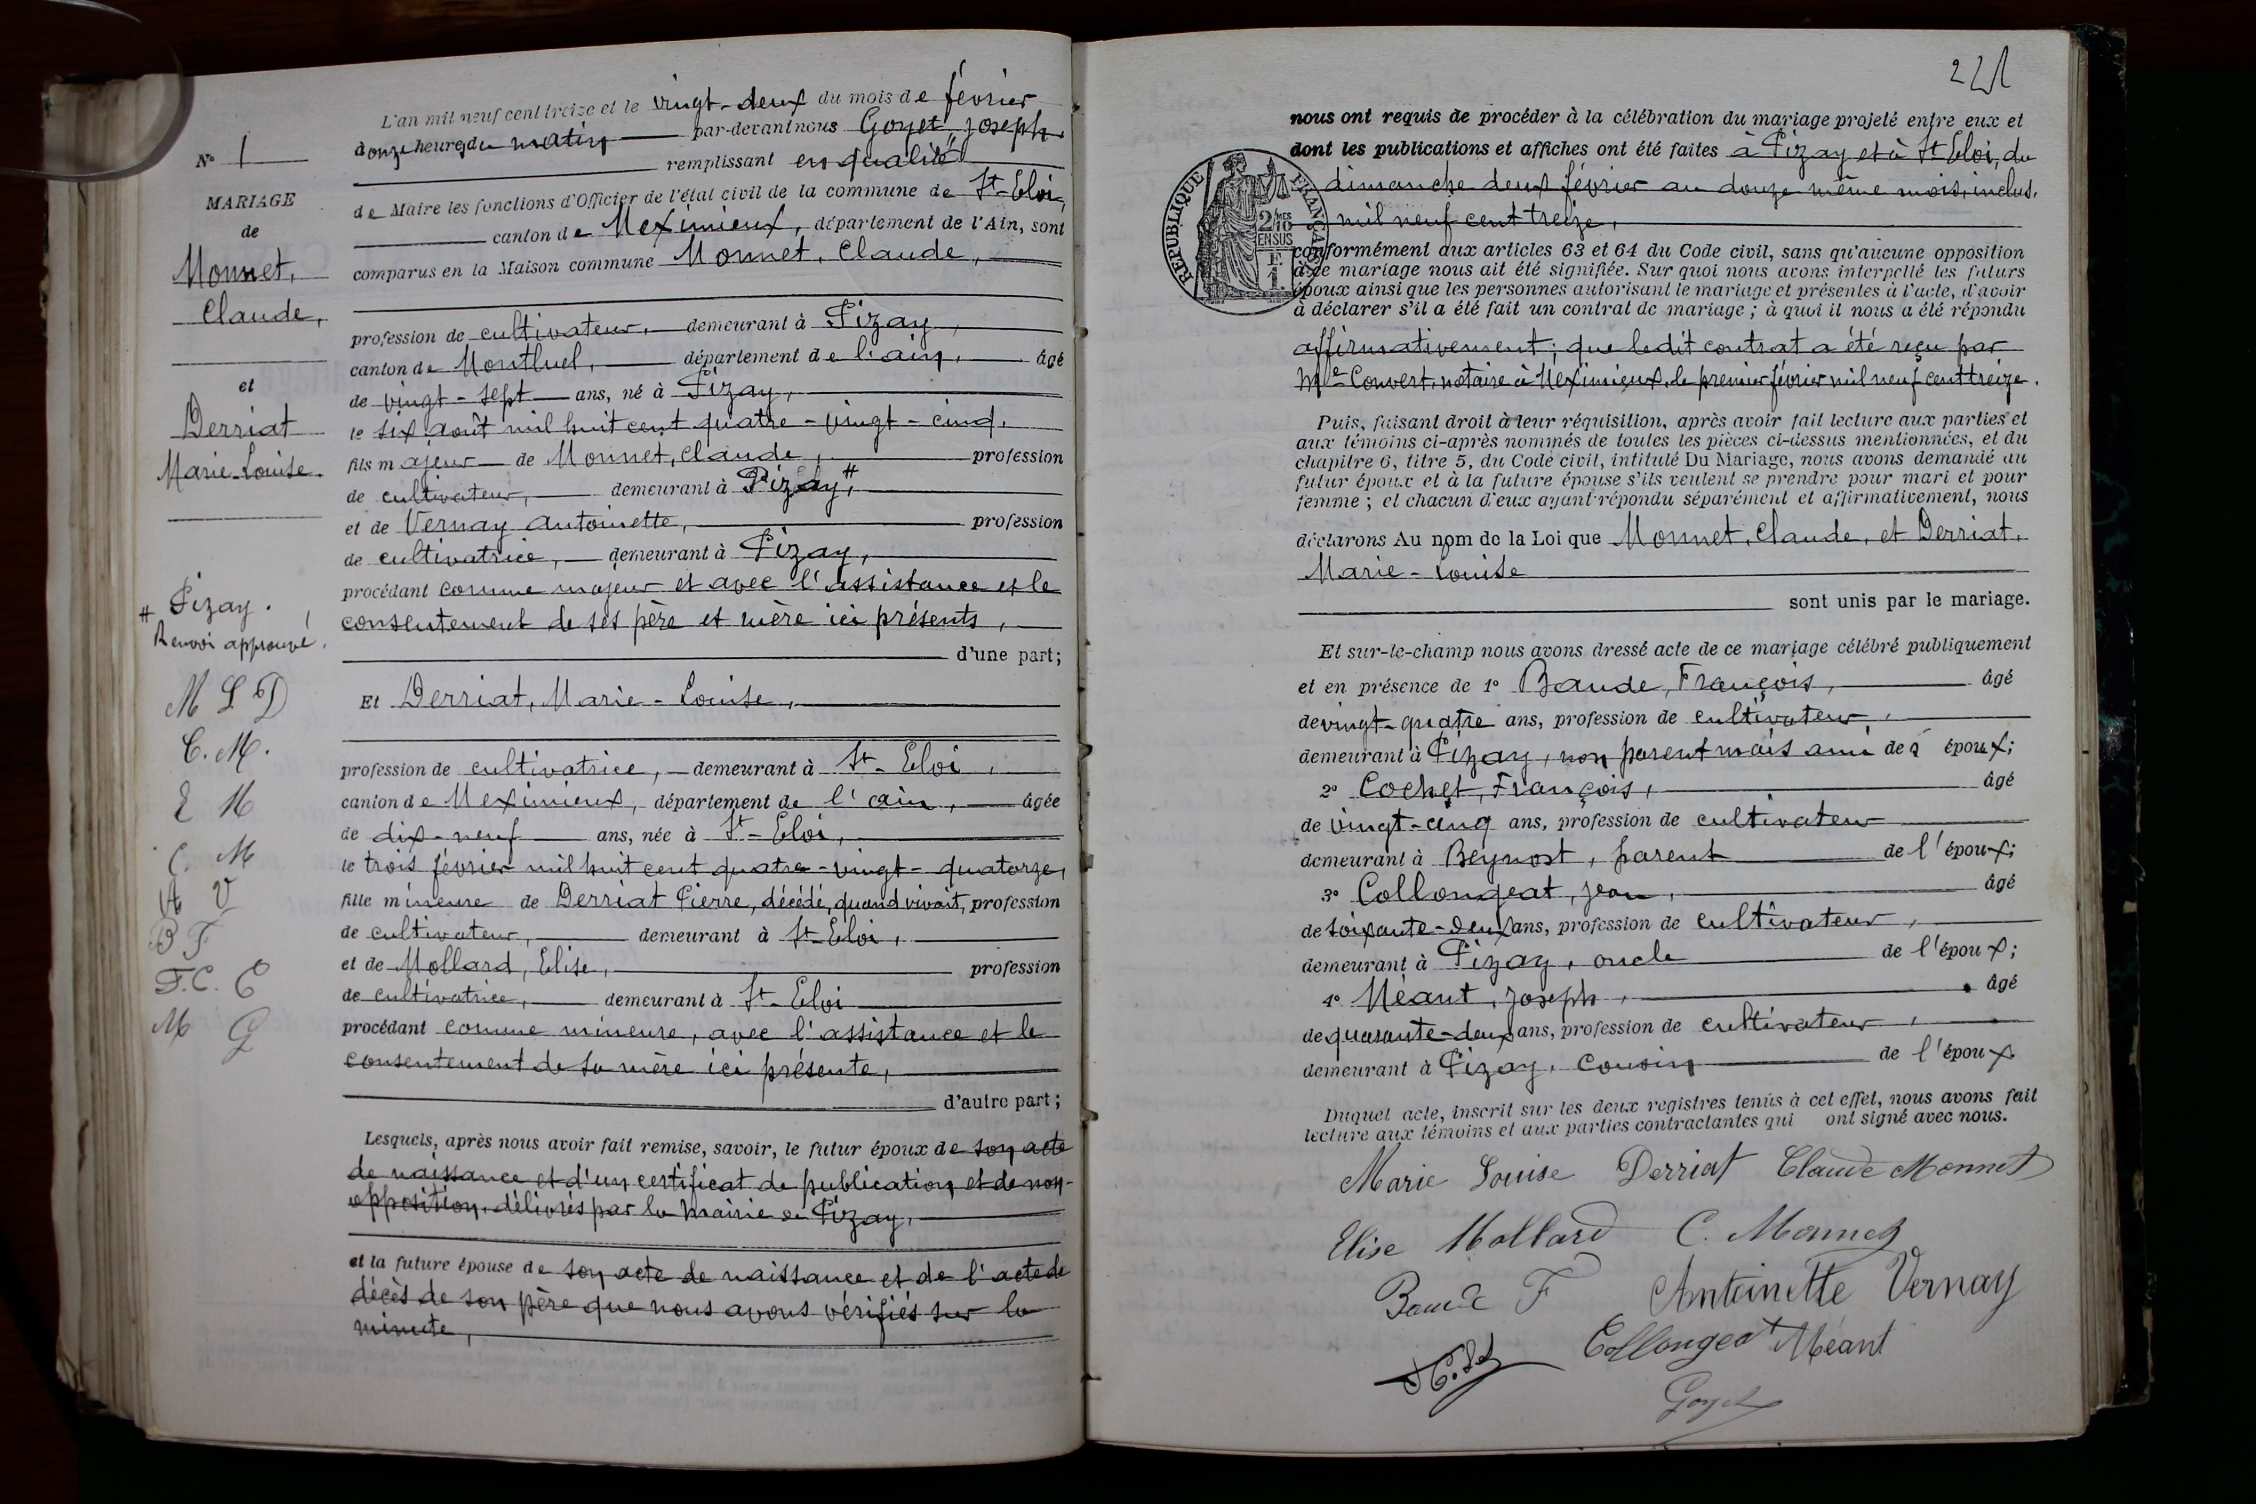 N° 1
MARIAGE
de
Monnet,
Claude,
et
Derriat
Marie-Louise.
# Pizay.
Renvoi approuvé.
M L D
C. M.
E M
C. M
A V
B F
F.C. C
M G
L'an mil neuf cent treize et le vingt-deux du mois de février
à onze heures du matin par-devant nous Goyet, Joseph
remplissant en qualité
de Maire les fonctions d'Officier de l'état civil de la commune de St-Eloi,
canton de Meximieux, département de l'Ain, sont
comparus en la Maison commune Monnet, Claude,
profession de cultivateur, demeurant à Pizay,
canton de Montluel, département de l'ain, âgé
de vingt-sept ans, né à Pizay,
le six août mil huit cent quatre-vingt-cinq.
fils majeur de Monnet, Claude, profession
de cultivateur, demeurant à Pizay #,
et de Vernay Antoinette, profession
de cultivatrice, demeurant à Pizay,
procédant comme majeur et avec l'assistance et le
consentement de ses père et mère ici présents,
d'une part;
Et Derriat, Marie-Louise,
profession de cultivatrice, demeurant à St-Eloi,
canton de Meximieux, département de l'ain, âgée
de dix-neuf ans, née à St-Eloi,
le trois février mil huit cent quatre-vingt-quatorze,
fille mineure de Derriat Pierre, décédé, quand vivait, profession
de cultivateur, demeurant à St-Eloi,
et de Mollard, Elise, profession
de cultivatrice, demeurant à St-Eloi
procédant comme mineure, avec l'assistance et le
consentement de sa mère ici présente,
d'autre part;
Lesquels, après nous avoir fait remise, savoir, le futur époux de son acte
de naissance et d'un certificat de publication et de non-
opposition, délivrés par la mairie de Pizay,
et la future épouse de son acte de naissance et de l'acte de
décès de son père que nous avons vérifiés sur la
minute,
221
nous ont requis de procéder à la célébration du mariage projeté entre eux et
dont les publications et affiches ont été faites à Pizay et à St Eloi, du
dimanche deux février au douze même mois, inclus,
mil neuf cent treize,
RÉPUBLIQUE FRANÇAISE
2/10 MES
EN SUS
1 F.
conformément aux articles 63 et 64 du Code civil, sans qu'aucune opposition
à ce mariage nous ait été signifiée. Sur quoi nous avons interpellé les futurs
époux ainsi que les personnes autorisant le mariage et présentes à l'acte, d'avoir
à déclarer s'il a été fait un contrat de mariage ; à quoi il nous a été répondu
affirmativement ; que ledit contrat a été reçu par
Me Convert, notaire à Meximieux, le premier février mil neuf cent treize.
Puis, faisant droit à leur réquisition, après avoir fait lecture aux parties et
aux témoins ci-après nommés de toutes les pièces ci-dessus mentionnées, et du
chapitre 6, titre 5, du Code civil, intitulé Du Mariage, nous avons demandé au
futur époux et à la future épouse s'ils veulent se prendre pour mari et pour
femme ; et chacun d'eux ayant répondu séparément et affirmativement, nous
déclarons Au nom de la Loi que Monnet, Claude, et Derriat,
Marie-Louise
sont unis par le mariage.
Et sur-le-champ nous avons dressé acte de ce mariage célébré publiquement
et en présence de 1° Baude, François, âgé
de vingt-quatre ans, profession de cultivateur,
demeurant à Pizay, non parent mais ami de l'époux;
2° Cochet, François, âgé
de vingt-cinq ans, profession de cultivateur
demeurant à Beynost, parent de l'époux;
3° Collongeat, Jean, âgé
de soixante-deux ans, profession de cultivateur,
demeurant à Pizay, oncle de l'époux;
4° Méant, Joseph, âgé
de quarante-deux ans, profession de cultivateur,
demeurant à Pizay, cousin de l'époux
Duquel acte, inscrit sur les deux registres tenus à cet effet, nous avons fait
lecture aux témoins et aux parties contractantes qui ont signé avec nous.
Marie Louise Derriat Claude Monnet
Elise Mollard C. Monnet
Baude F Antoinette Vernay
Collongeat Méant
Goyet